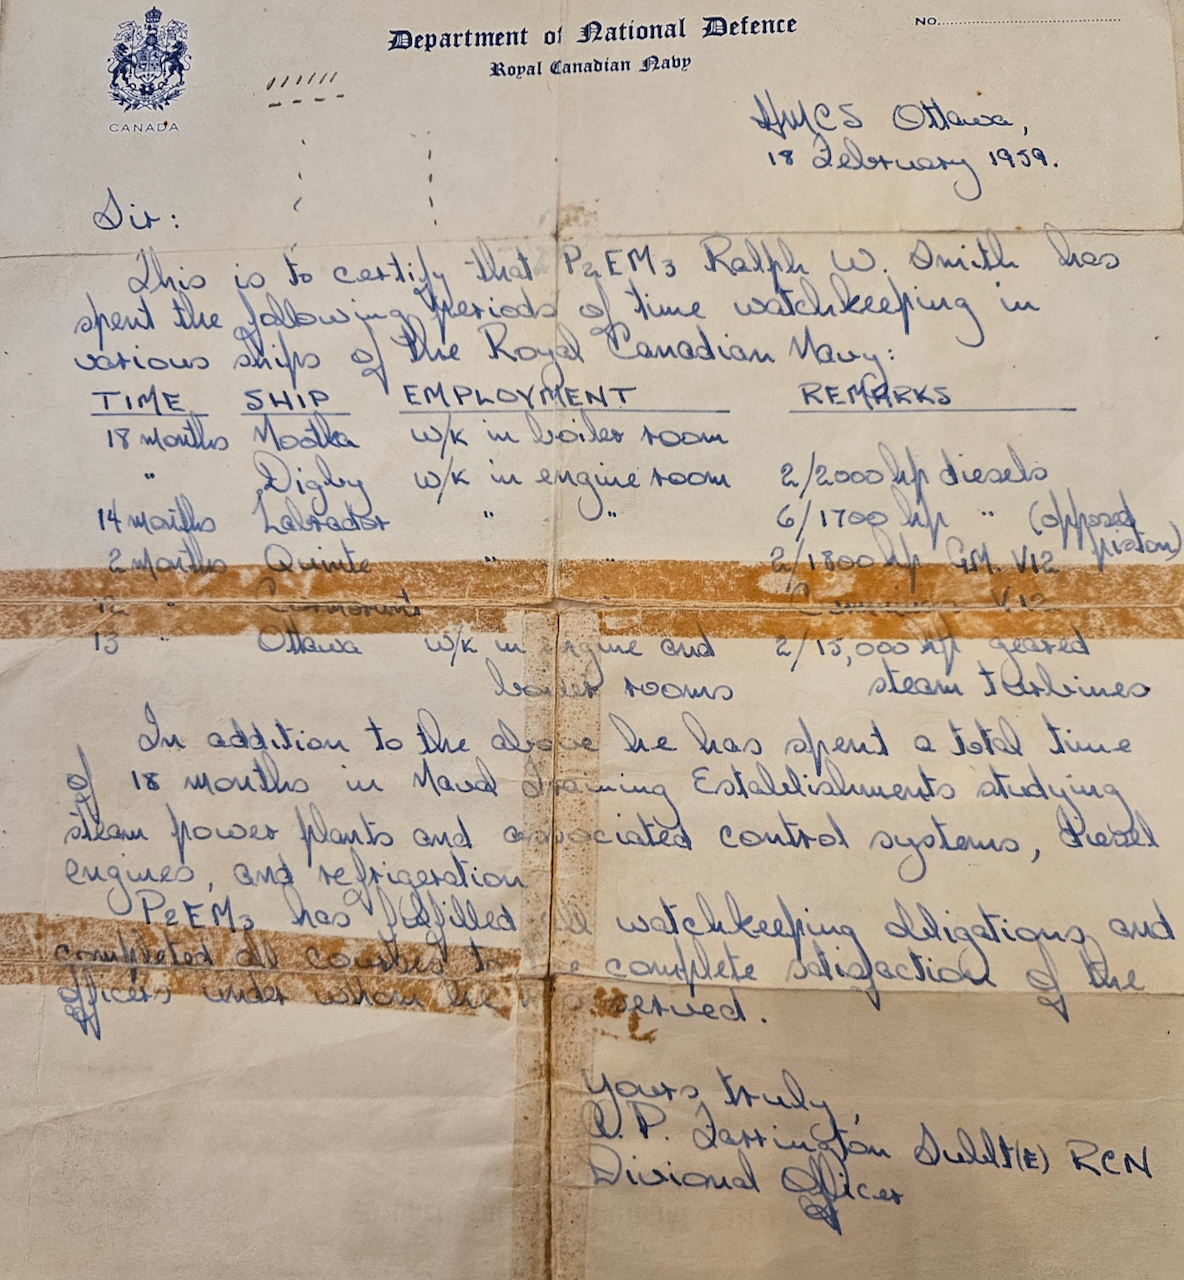 Department of National Defence
Royal Canadian Navy
NO.
CANADA
HMCS Ottawa,
18 February 1959.
Sir:
This is to certify that P2EM3 Ralph W. Smith has
spent the following periods of time watchkeeping in
various ships of the Royal Canadian Navy:
TIME SHIP EMPLOYMENT REMARKS
18 months Nootka w/k in boiler room
" Digby w/k in engine room 2/2000 hp diesels
14 months Labrador " " 6/1700 hp " (opposed
piston)
2 months Quinte " " 2/1800 hp GM. V12
12 " Cormorant " V12
13 " Ottawa w/k in engine and 2/15,000 hp geared
boiler rooms steam turbines
In addition to the above he has spent a total time
of 18 months in Naval Training Establishments studying
steam power plants and associated control systems, diesel
engines, and refrigeration
P2EM3 has fulfilled all watchkeeping obligations and
completed all courses to the complete satisfaction of the
officers under whom he has served.
Yours truly,
P. Farrington SubLt(E) RCN
Divisional Officer